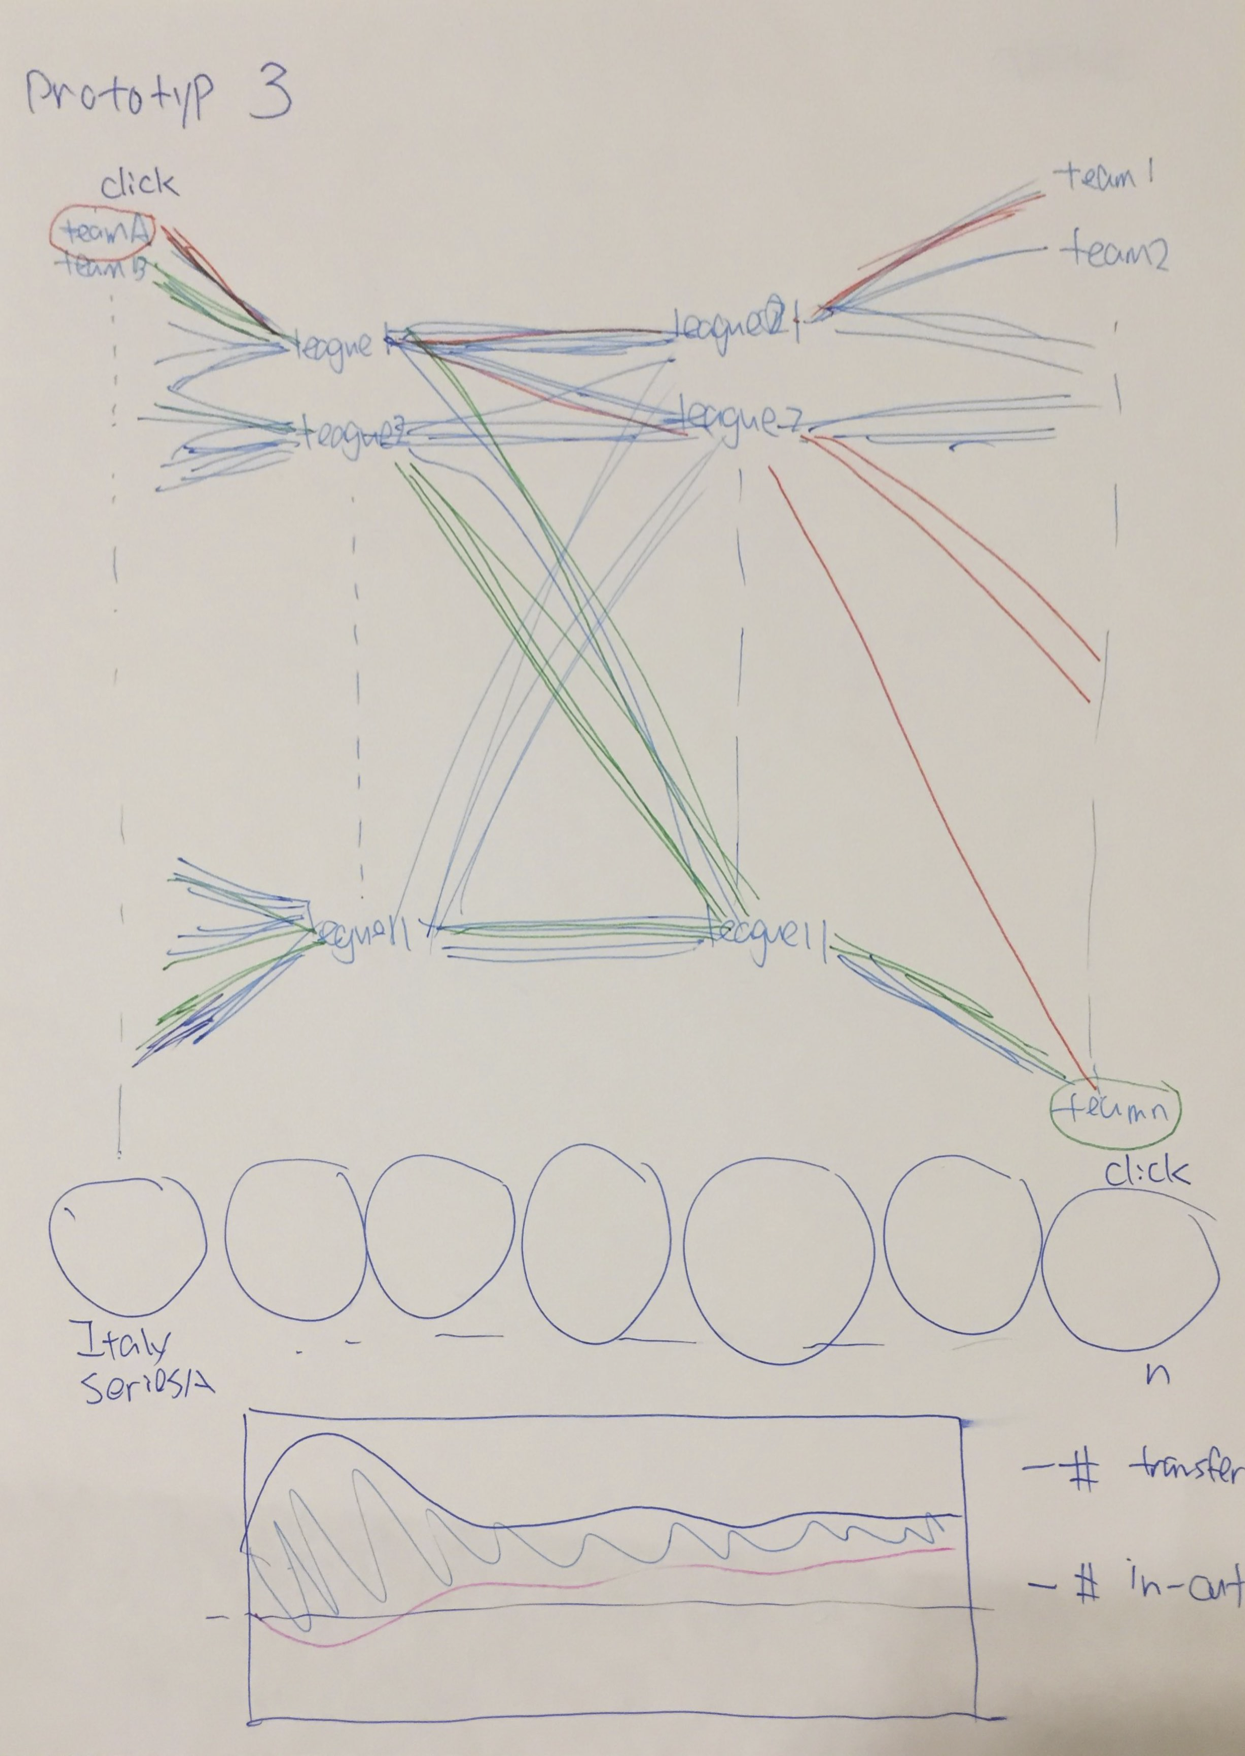 Prototyp 3
click
teamA
teamB
team1
team2
league1
league2
league1
league2
league11
league11
teamn
click
Italy
Series/A
n
# transfer
# in-out